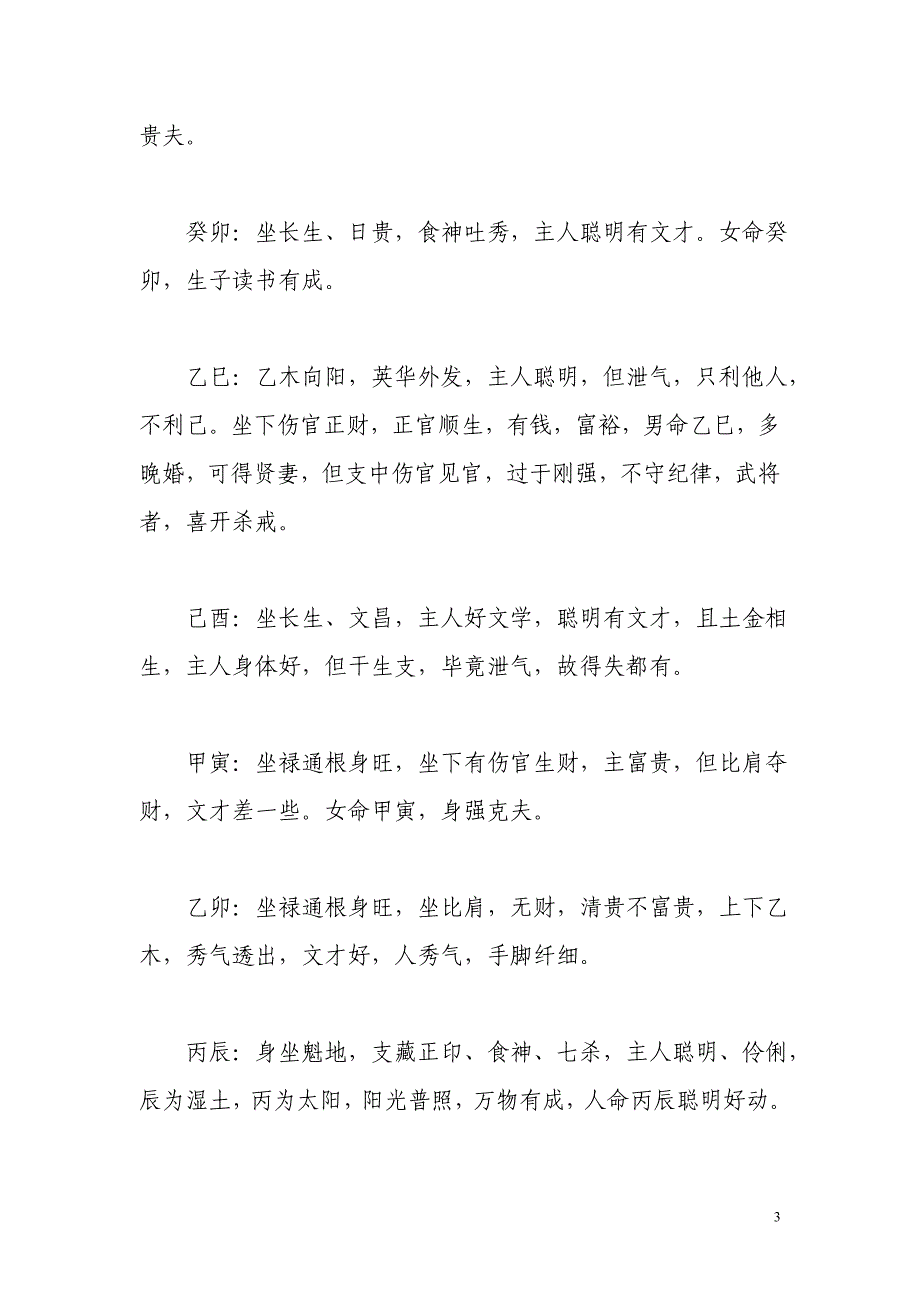 贵夫。
癸卯：坐长生、日贵，食神吐秀，主人聪明有文才。女命癸
卯，生子读书有成。
乙巳：乙木向阳，英华外发，主人聪明，但泄气，只利他人，
不利己。坐下伤官正财，正官顺生，有钱，富裕，男命乙巳，多
晚婚，可得贤妻，但支中伤官见官，过于刚强，不守纪律，武将
者，喜开杀戒。
己酉：坐长生、文昌，主人好文学，聪明有文才，且土金相
生，主人身体好，但干生支，毕竟泄气，故得失都有。
甲寅：坐禄通根身旺，坐下有伤官生财，主富贵，但比肩夺
财，文才差一些。女命甲寅，身强克夫。
乙卯：坐禄通根身旺，坐比肩，无财，清贵不富贵，上下乙
木，秀气透出，文才好，人秀气，手脚纤细。
丙辰：身坐魁地，支藏正印、食神、七杀，主人聪明、伶俐，
辰为湿土，丙为太阳，阳光普照，万物有成，人命丙辰聪明好动。
3